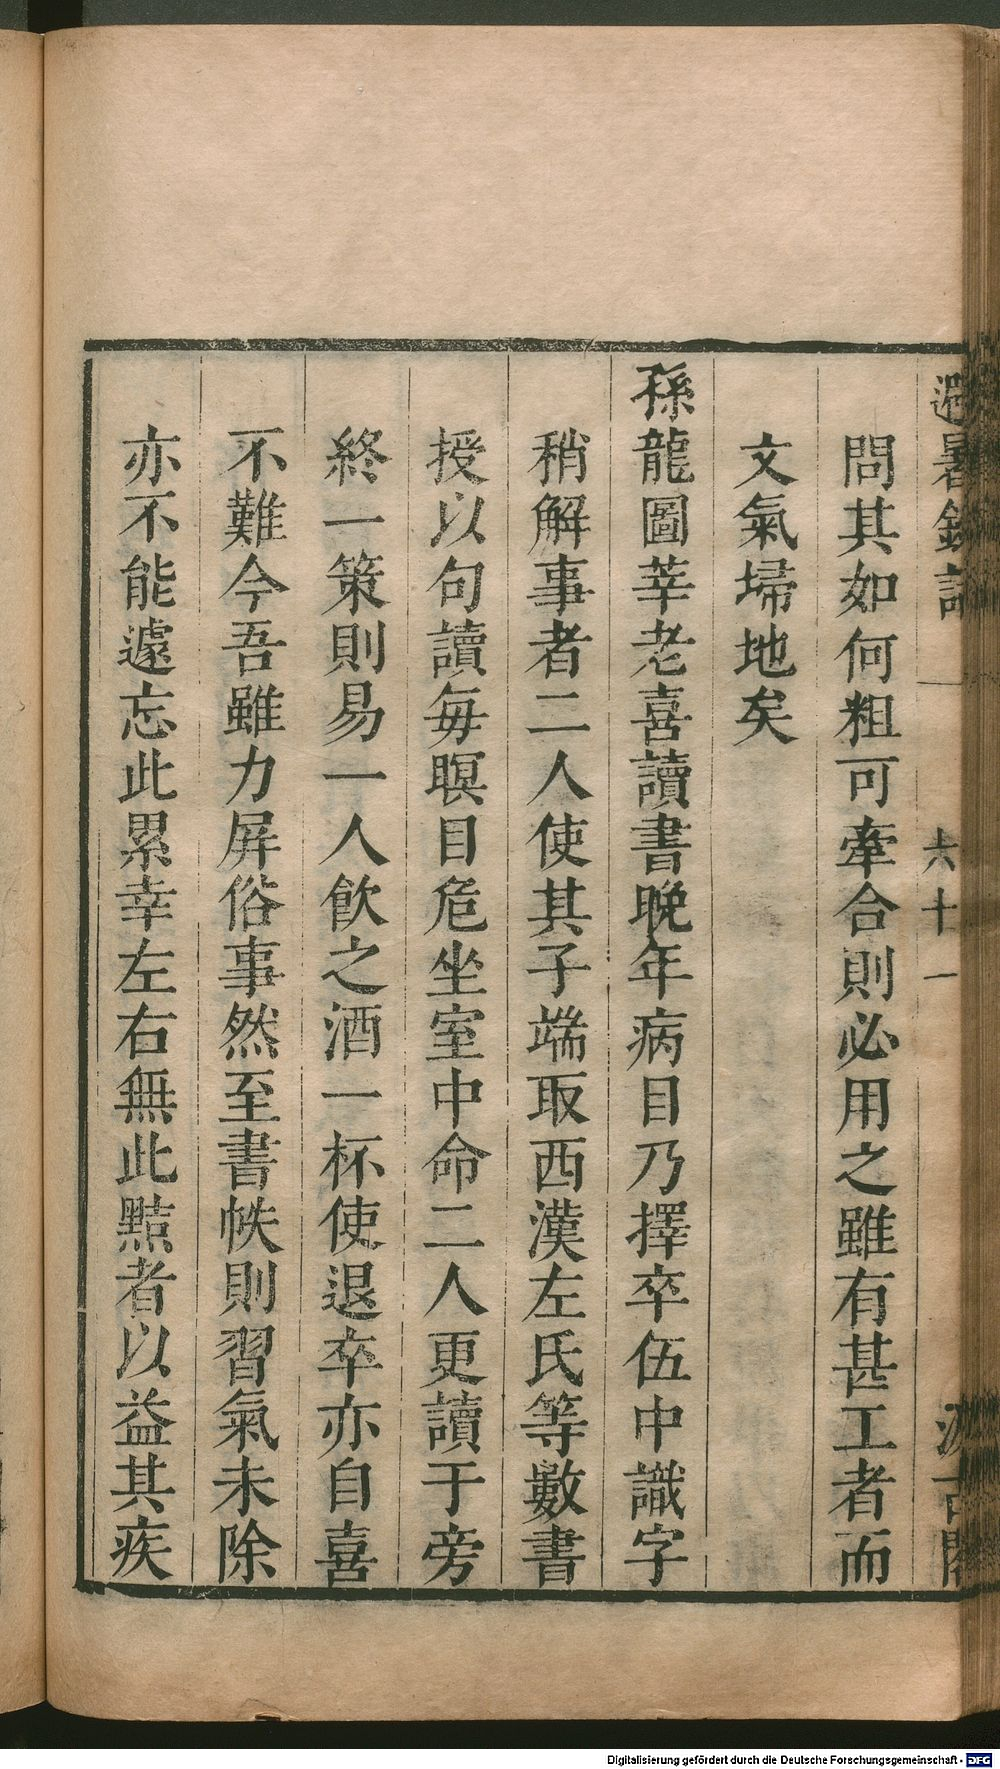 避暑錄話
六十一
汲古閣
問其如何粗可牽合則必用之雖有甚工者而
文氣埽地矣
孫龍圖莘老喜讀書晚年病目乃擇卒伍中識字
稍解事者二人使其子端取西漢左氏等數書
授以句讀每瞑目危坐室中命二人更讀于旁
終一策則易一人飲之酒一杯使退卒亦自喜
不難今吾雖力屏俗事然至書帙則習氣未除
亦不能遽忘此累幸左右無此黠者以益其疾
Digitalisierung gefördert durch die Deutsche Forschungsgemeinschaft - DFG